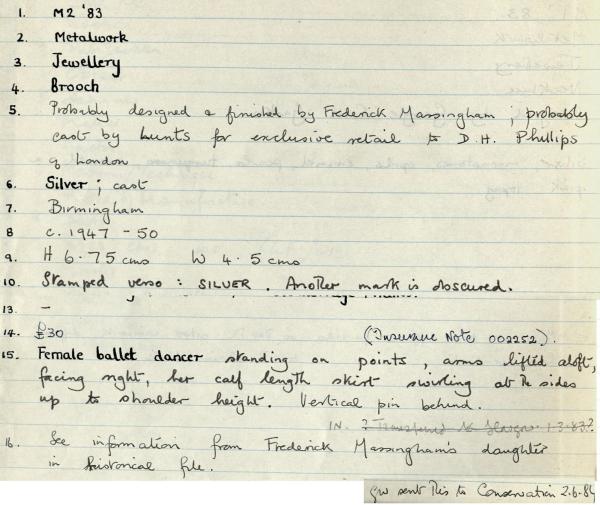 1. M2 '83
2. Metalwork
3. Jewellery
4. Brooch
5. Probably designed & finished by Frederick Massingham, probably
cast by Lunts for exclusive retail to D.H. Phillips
of London
6. Silver; cast
7. Birmingham
8 c. 1947 - 50
9. H 6.75 cms W 4.5 cms
10. Stamped verso: SILVER. Another mark is obscured.
13. -
14. £30 (Insurance Note 002252).
15. Female ballet dancer standing on points, arms lifted aloft,
facing right, her calf length skirt swirling at the sides
up to shoulder height. Vertical pin behind.
IN. ? Transferred to 1.3.83?
16. See information from Frederick Massingham's daughter
in historical file.
GW sent this to Conservation 2.6.84